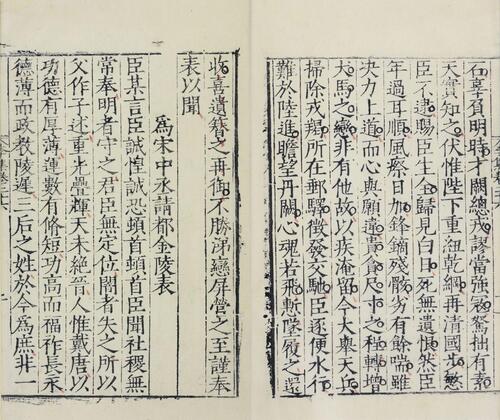 石辜負明時才闕總戎謬當強寇駑拙有素
天實知之伏惟陛下重紐乾綱再清國步愍
臣不逮賜臣生全歸見白日死無遺恨然臣
年過耳順風瘵日加鋒鏑殘骸劣有餘喘雖
決力上道而心與願違貪尺寸之程轉增
犬馬之戀非有他故以疾淹留今大舉天兵
掃除戎羯所在郵驛徵發交馳臣逐便水行
難於陸進瞻望丹闕心魂若飛慚墜履之還
收喜遺簪之再御不勝涕戀屏營之至謹奉
表以聞
為宋中丞請都金陵表
臣某言臣誠惶誠恐頓首頓首臣聞社稷無
常奉明者守之君臣無定位闇者失之所以
父作子述重光疊輝天未絕晉人惟戴唐以
功德有厚薄運數有脩短功高而福祚長永
德薄而政教陵遲三后之姓於今為庶非一